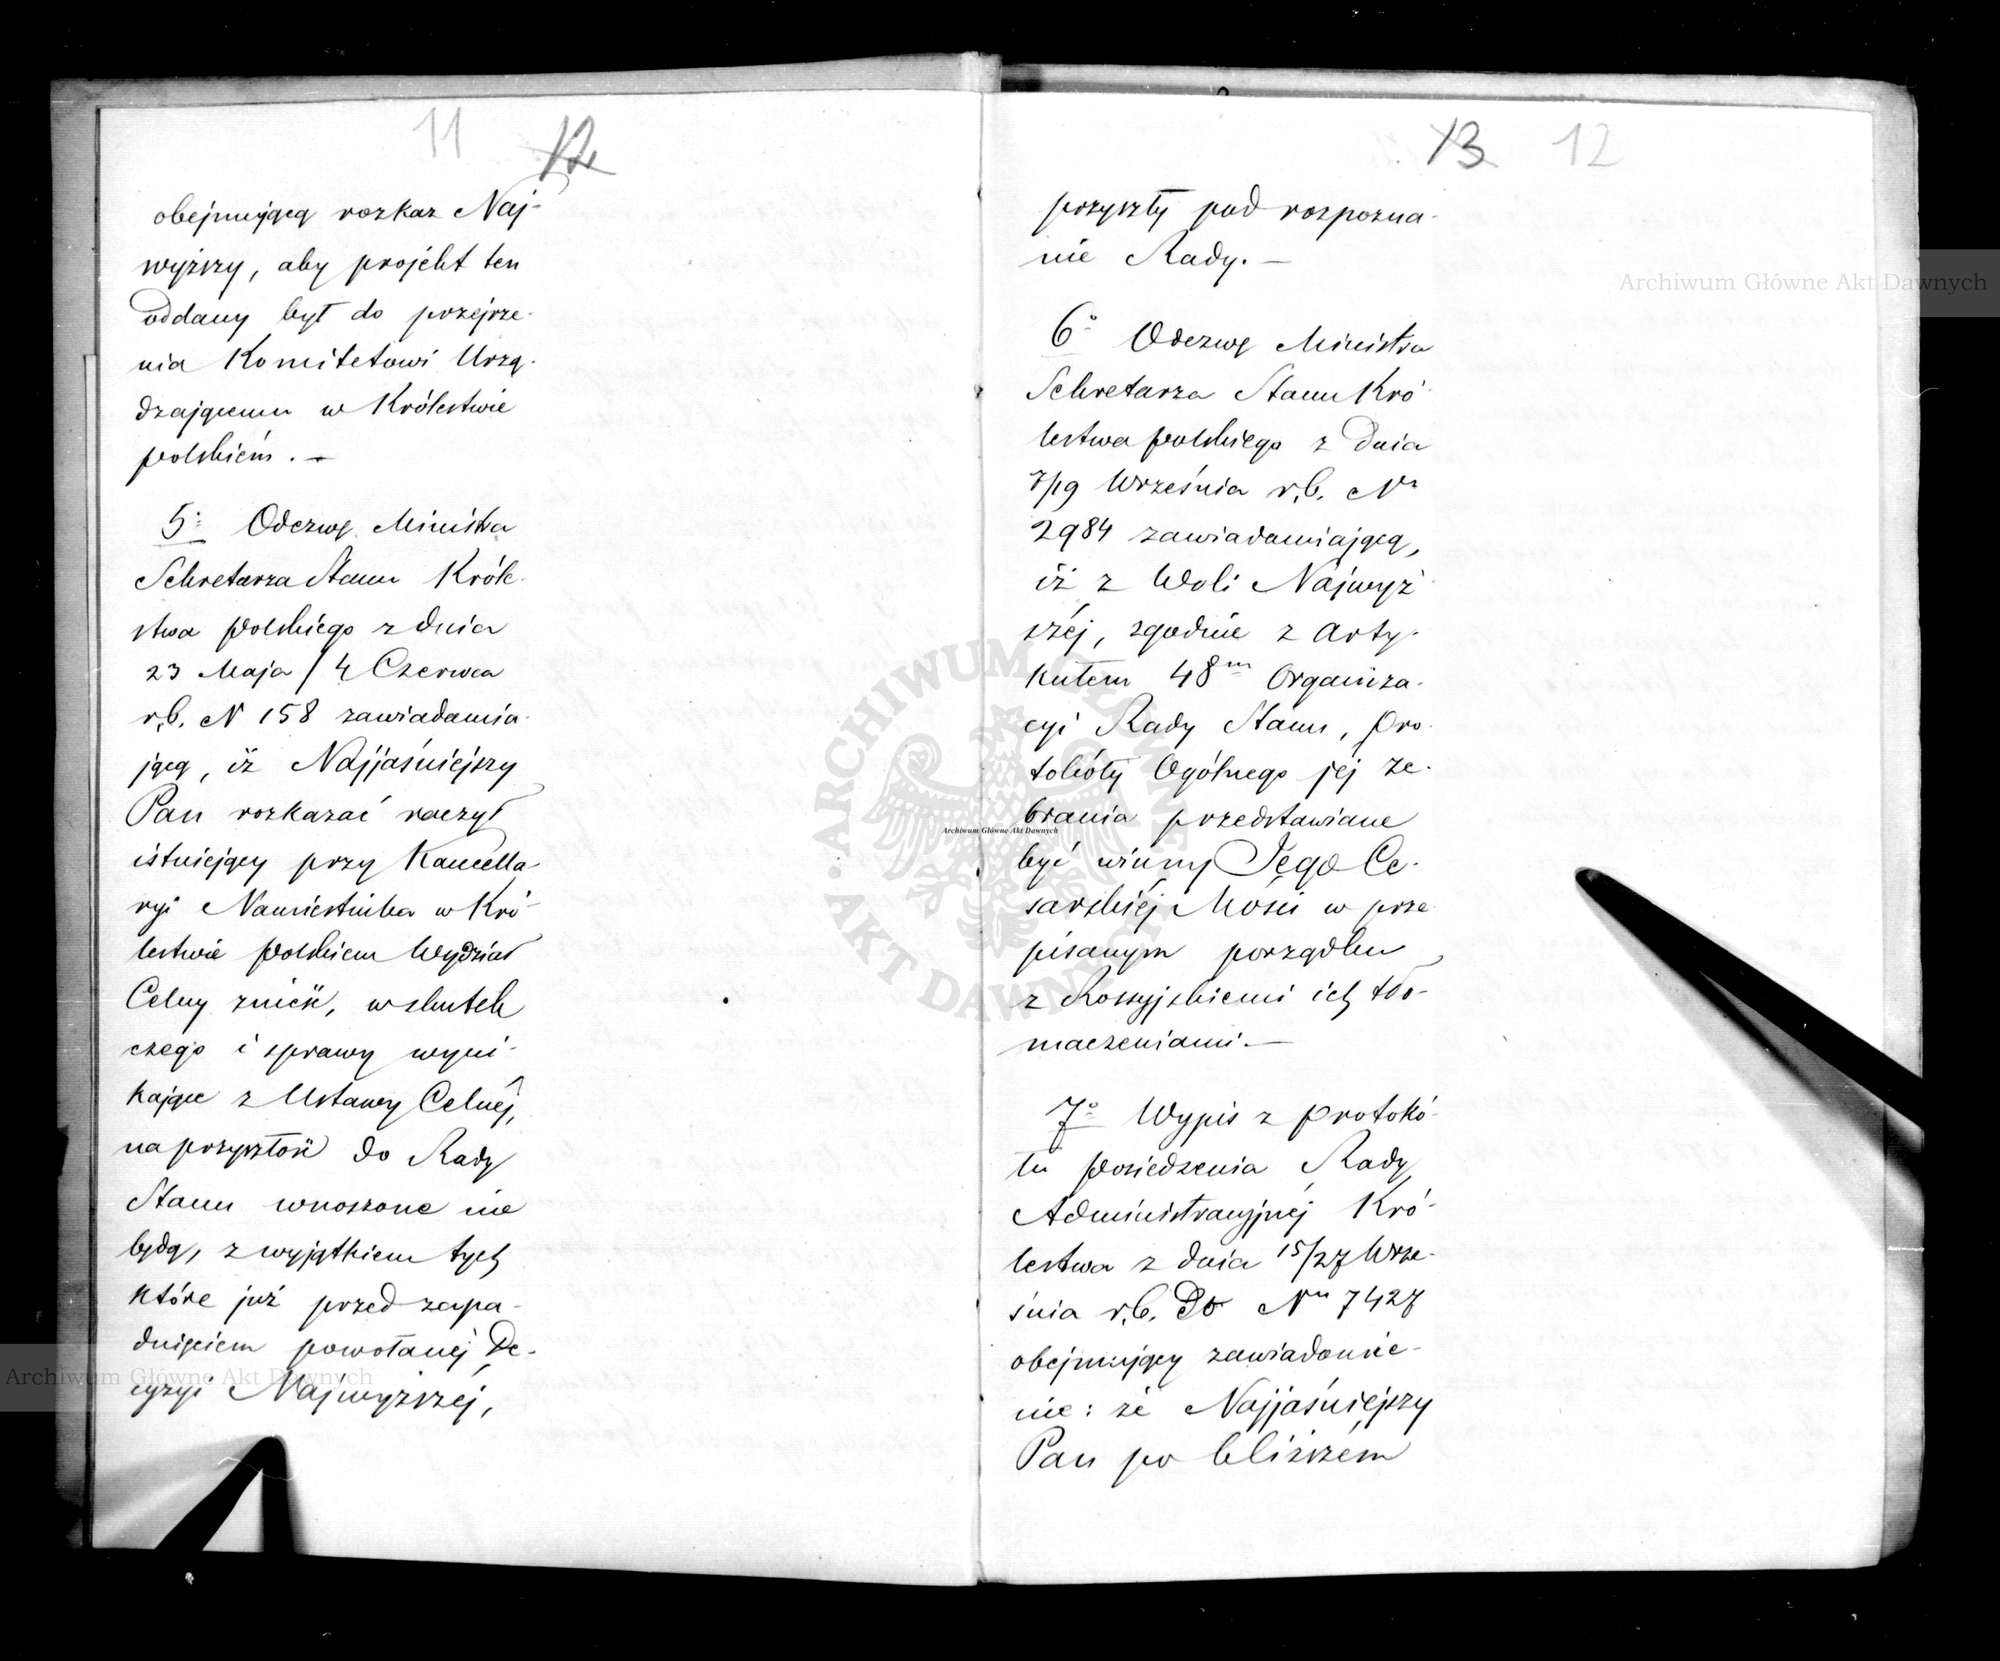 11 12
obejmującą rozkaz Naj-
wyższy, aby projekt ten
oddany był do przejrze-
nia Komitetowi Urzą-
dzającemu w Królestwie
polskiém. —
5º Odezwę Ministra
Sekretarza Stanu Króle-
stwa Polskiego z dnia
23 Maja / 4 Czerwca
r.b. N 158 zawiadamia-
jącą, iż Najjaśniejszy
Pan rozkazać raczył
istniejący przy Kancella-
ryi Namiestnika w Kró-
lestwie Polskiem Wydział
Celny znieść, wskutek
czego i sprawy wyni-
kające z Ustawy Celnéj,
na przyszłość do Rady
Stanu wnoszone nie
będą, z wyjątkiem tych
które już przed zapa-
dnięciem powołanéj De-
cyzyi Najwyższéj,
13 12
przyszły pod rozpozna-
nie Rady. —
6º Odezwę Ministra
Sekretarza Stanu Kró-
lestwa Polskiego z dnia
7/19 Września r.b. Nr
2984 zawiadamiającą,
iż z Woli Najwyż-
széj, zgodnie z Arty-
kułem 48m Organiza-
cyi Rady Stanu, Pro-
tokóły Ogólnego jéj ze-
brania przedstawiane
być winny Jego Ce-
sarskiéj Mości w prze-
pisanym porządku
z Rossyjskiemi ich tłó-
maczeniami. —
7º Wypis z protokó-
łu Posiedzenia Rady
Administracyjnéj Kró-
lestwa z dnia 15/27 Wrze-
śnia r.b. Do Nru 7427
obejmujący zawiadomie-
nie: że Najjaśniejszy
Pan po bliższém
Archiwum Główne Akt Dawnych
Archiwum Główne Akt Dawnych
Archiwum Główne Akt Dawnych
ARCHIWUM GŁÓWNE AKT DAWNYCH